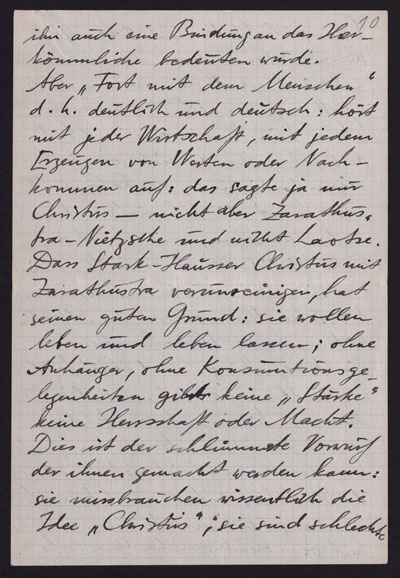 10
ihn auch eine Bindung an das Her-
kömmliche bedeuten würde.
Aber „Fort mit dem Menschen"
d. h. deutlich und deutsch: hört
mit jeder Wirtschaft, mit jedem
Erzeugen von Werten oder Nach-
kommen auf: das sagte ja nur
Christus — nicht aber Zarathus-
tra-Nietzsche und nicht Laotse.
Dass Stark-Häusser Christus mit
Zarathustra verunreinigen, hat
seinen guten Grund: sie wollen
leben und leben lassen; ohne
Anhänger, ohne Konsumtionsge-
legenheiten gibt keine „Stärke"
keine Herrschaft oder Macht.
Dies ist der schlimmste Vorwurf
der ihnen gemacht werden kann:
sie missbrauchen wissentlich die
Idee „Christus"; sie sind schlechte